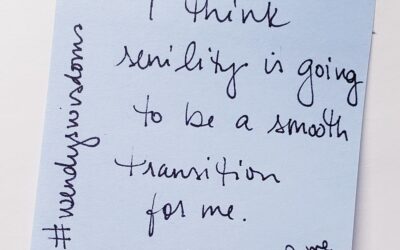 I think
senility is going
to be a smooth
transition
for me.
me
#wendyswisdoms